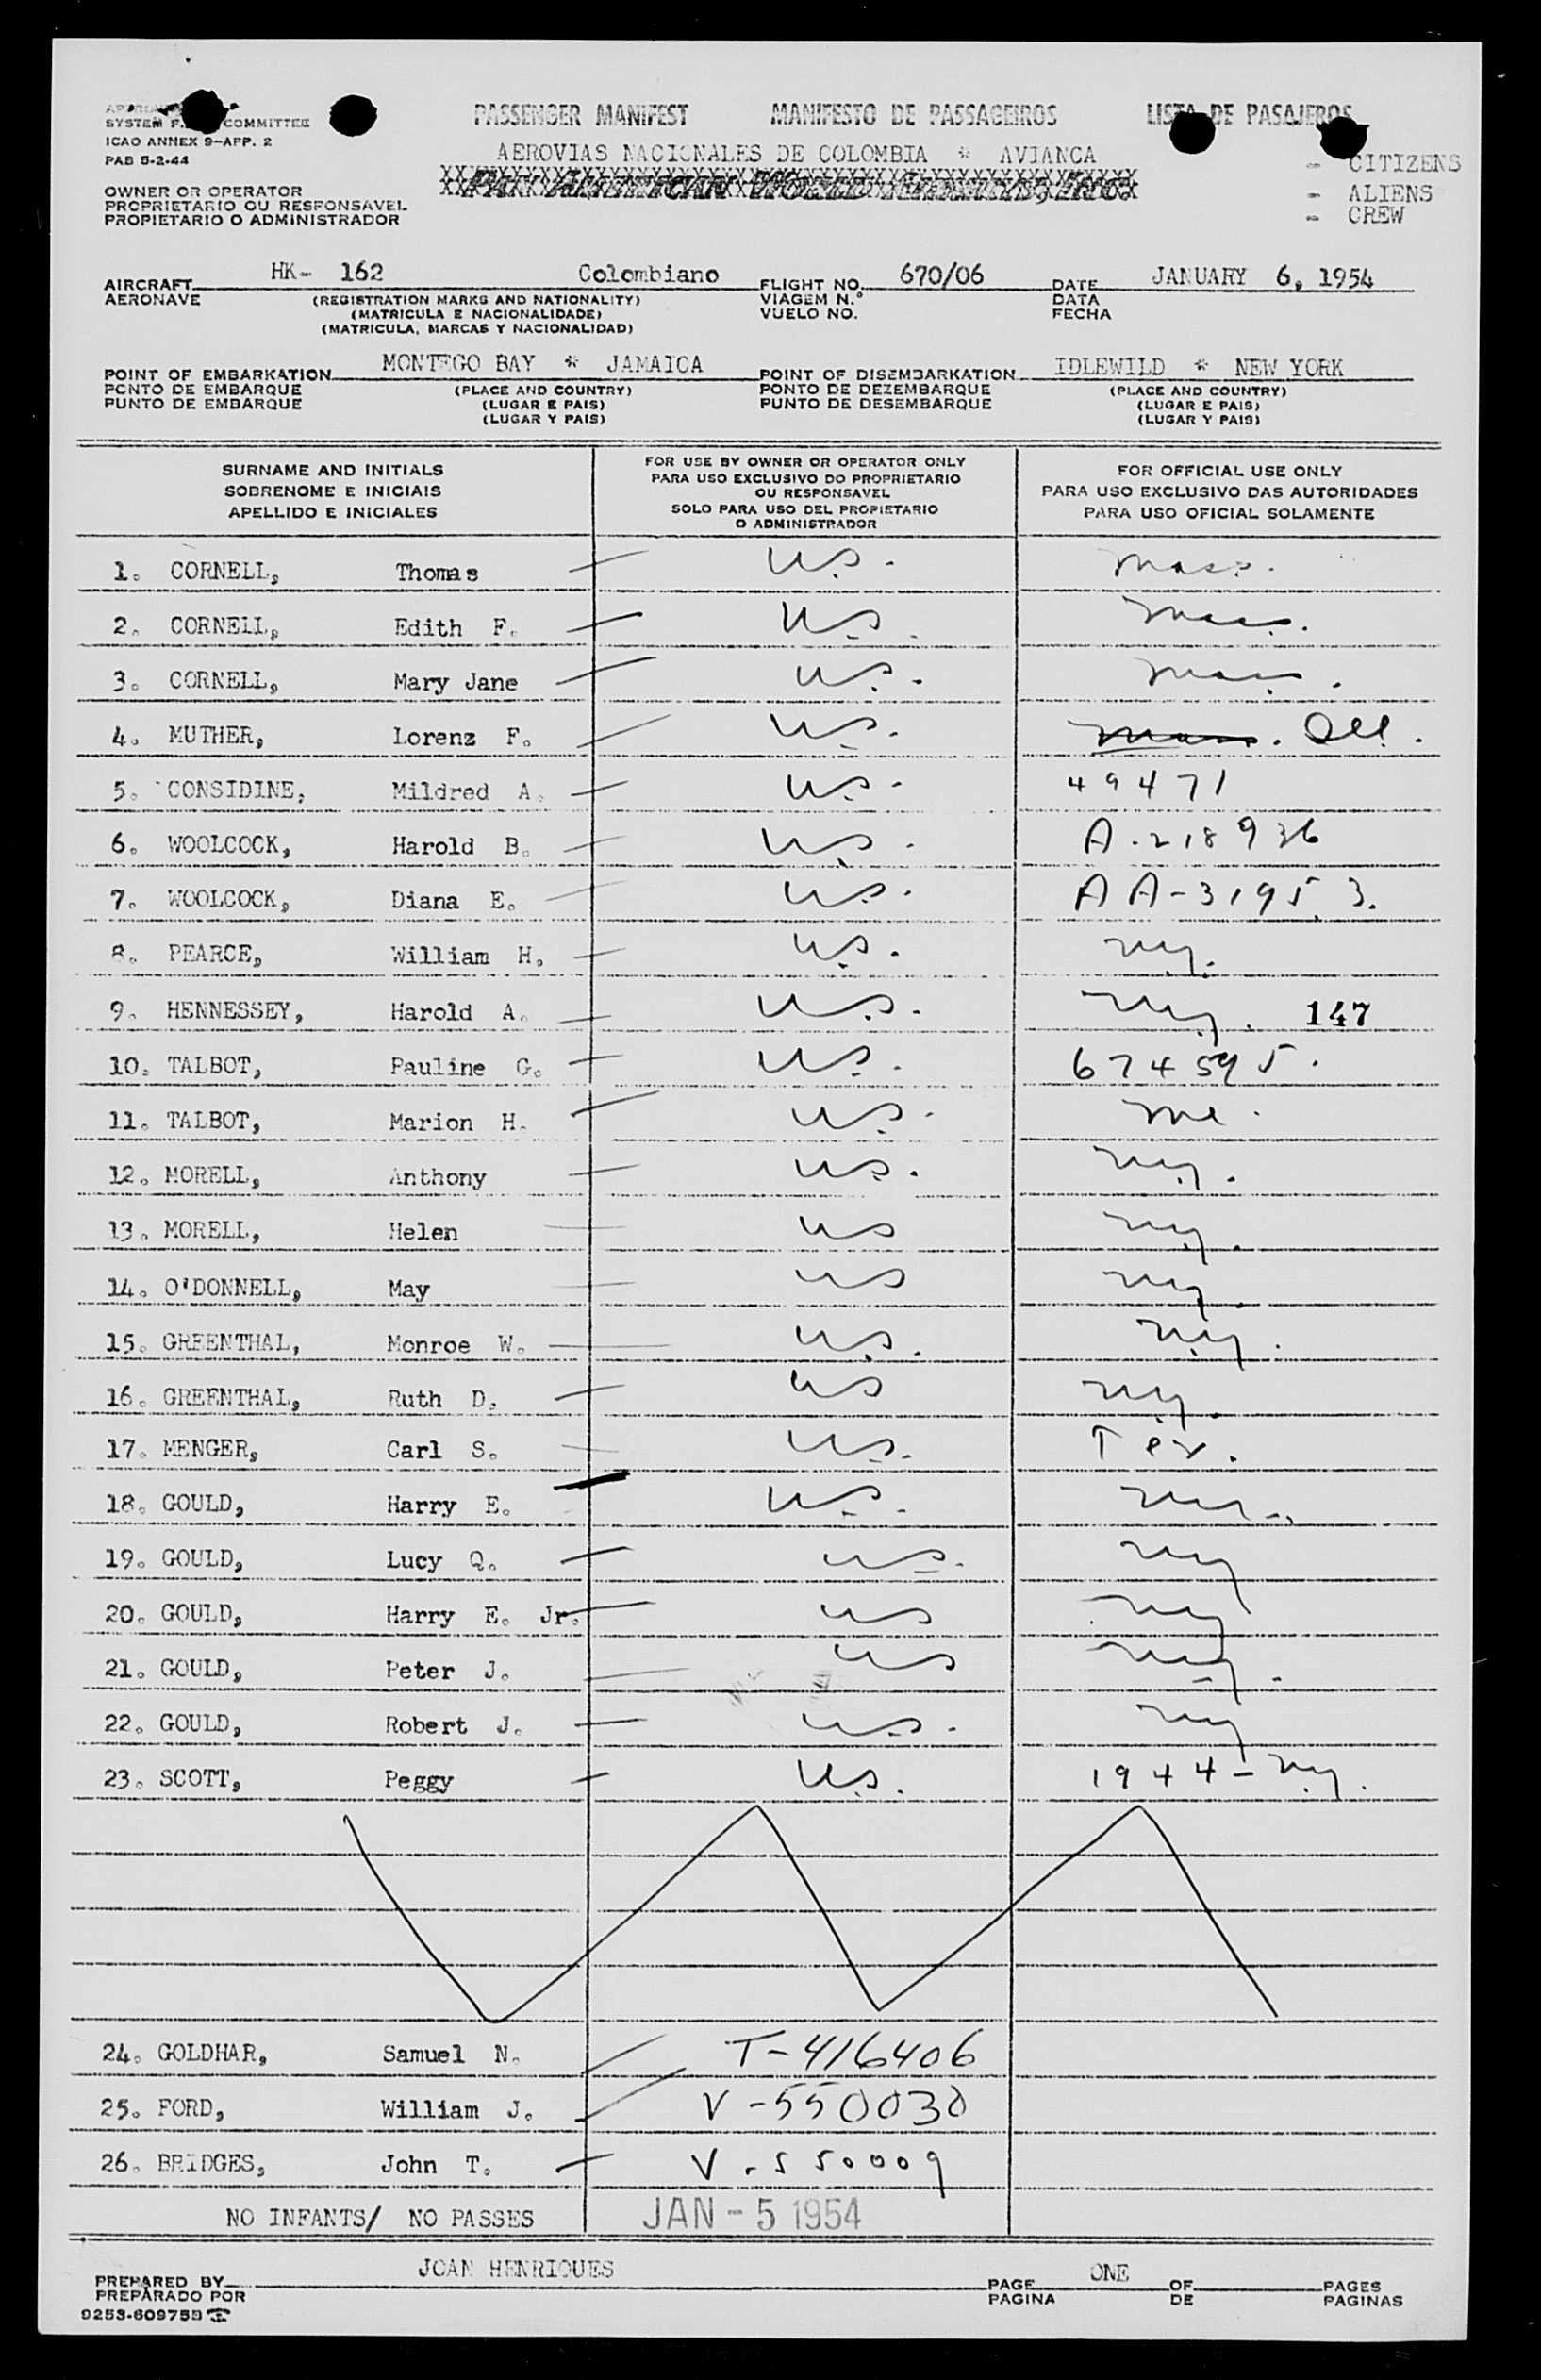 SYSTEM COMMITTEE
ICAO ANNEX 9-APP. 2
PAB 5-2-44
PASSENGER MANIFEST MANIFESTO DE PASSAGEIROS LISTA DE PASAJEROS
AEROVIAS NACIONALES DE COLOMBIA * AVIANCA
PAN AMERICAN WORLD AIRWAYS, INC.
- CITIZENS
- ALIENS
- CREW
OWNER OR OPERATOR
PROPRIETARIO OU RESPONSAVEL
PROPIETARIO O ADMINISTRADOR
AIRCRAFT HK- 162 Colombiano FLIGHT NO. 670/06 DATE JANUARY 6, 1954
AERONAVE (REGISTRATION MARKS AND NATIONALITY) VIAGEM N.º DATA
(MATRICULA E NACIONALIDADE) VUELO NO. FECHA
(MATRICULA, MARCAS Y NACIONALIDAD)
POINT OF EMBARKATION MONTEGO BAY * JAMAICA POINT OF DISEMBARKATION IDLEWILD * NEW YORK
PONTO DE EMBARQUE (PLACE AND COUNTRY) PONTO DE DEZEMBARQUE (PLACE AND COUNTRY)
PUNTO DE EMBARQUE (LUGAR E PAIS) PUNTO DE DESEMBARQUE (LUGAR E PAIS)
(LUGAR Y PAIS) (LUGAR Y PAIS)
SURNAME AND INITIALS
SOBRENOME E INICIAIS
APELLIDO E INICIALES
FOR USE BY OWNER OR OPERATOR ONLY
PARA USO EXCLUSIVO DO PROPRIETARIO
OU RESPONSAVEL
SOLO PARA USO DEL PROPIETARIO
O ADMINISTRADOR
FOR OFFICIAL USE ONLY
PARA USO EXCLUSIVO DAS AUTORIDADES
PARA USO OFICIAL SOLAMENTE
1. CORNELL, Thomas U.S. Mass.
2. CORNELL, Edith F. U.S. Mass.
3. CORNELL, Mary Jane U.S. Mass.
4. MUTHER, Lorenz F. U.S. Mass.
5. CONSIDINE, Mildred A. U.S. 49471
6. WOOLCOCK, Harold B. U.S. A-218936
7. WOOLCOCK, Diana E. U.S. AA-31953.
8. PEARCE, William H. U.S. NY.
9. HENNESSEY, Harold A. U.S. NY. 147
10. TALBOT, Pauline G. U.S. 674595.
11. TALBOT, Marion H. U.S. Me.
12. MORELL, Anthony U.S. NY.
13. MORELL, Helen US NY.
14. O'DONNELL, May US NY.
15. GREENTHAL, Monroe W. U.S. NY.
16. GREENTHAL, Ruth D. US NY.
17. MENGER, Carl S. U.S. Tex.
18. GOULD, Harry E. U.S. NY.
19. GOULD, Lucy Q. U.S. NY
20. GOULD, Harry E. Jr. US NY
21. GOULD, Peter J. US NY.
22. GOULD, Robert J. U.S. NY
23. SCOTT, Peggy U.S. 1944-NY.
24. GOLDHAR, Samuel N. T-416406
25. FORD, William J. V-550030
26. BRIDGES, John T. V-550009
NO INFANTS/ NO PASSES JAN-5 1954
PREPARED BY JOAN HENRIQUES PAGE ONE OF PAGES
PREPARADO POR PAGINA DE PAGINAS
9253-60975B